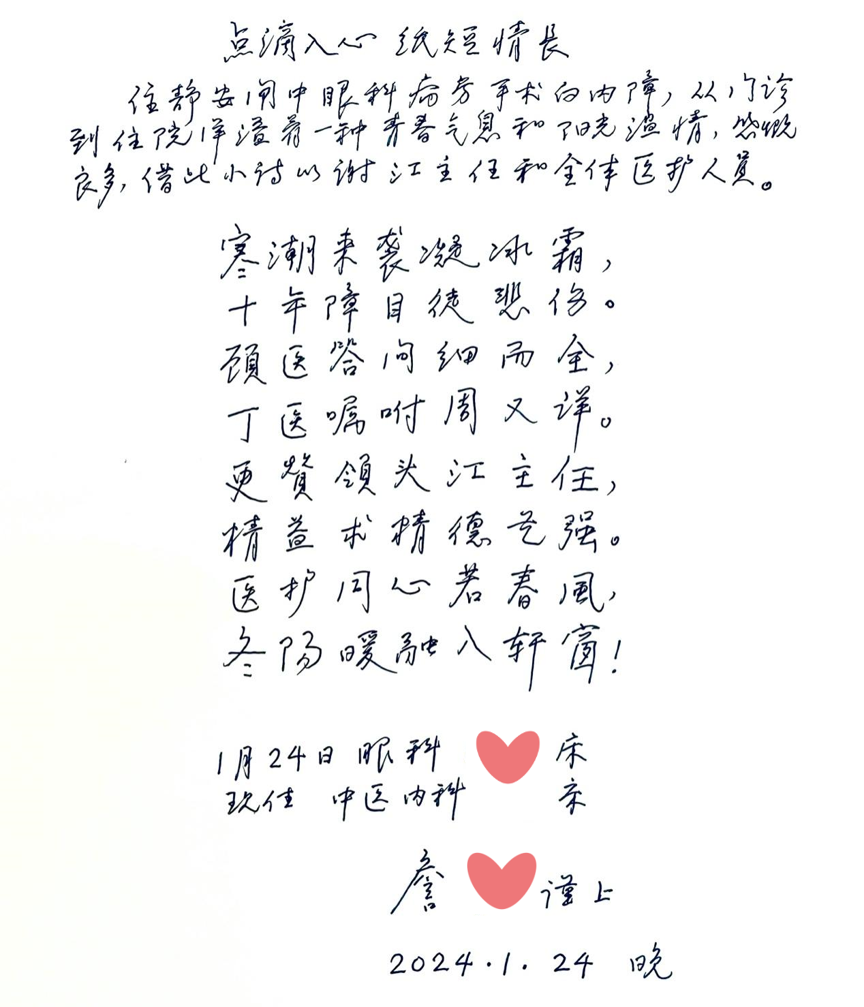 点滴入心 纸短情长
住静安闸中眼科病房手术白内障，从门诊
到住院洋溢着一种青春气息和阳光温情，感慨
良多，借此小诗以谢江主任和全体医护人员。
寒潮来袭凝冰霜，
十年障目徒悲伤。
顾医答问细而全，
丁医嘱咐周又详。
更赞领头江主任，
精益求精德艺强。
医护同心若春風，
冬阳暖融入轩窗！
1月24日 眼科 床
现住 中医内科 床
詹 谨上
2024.1.24 晚